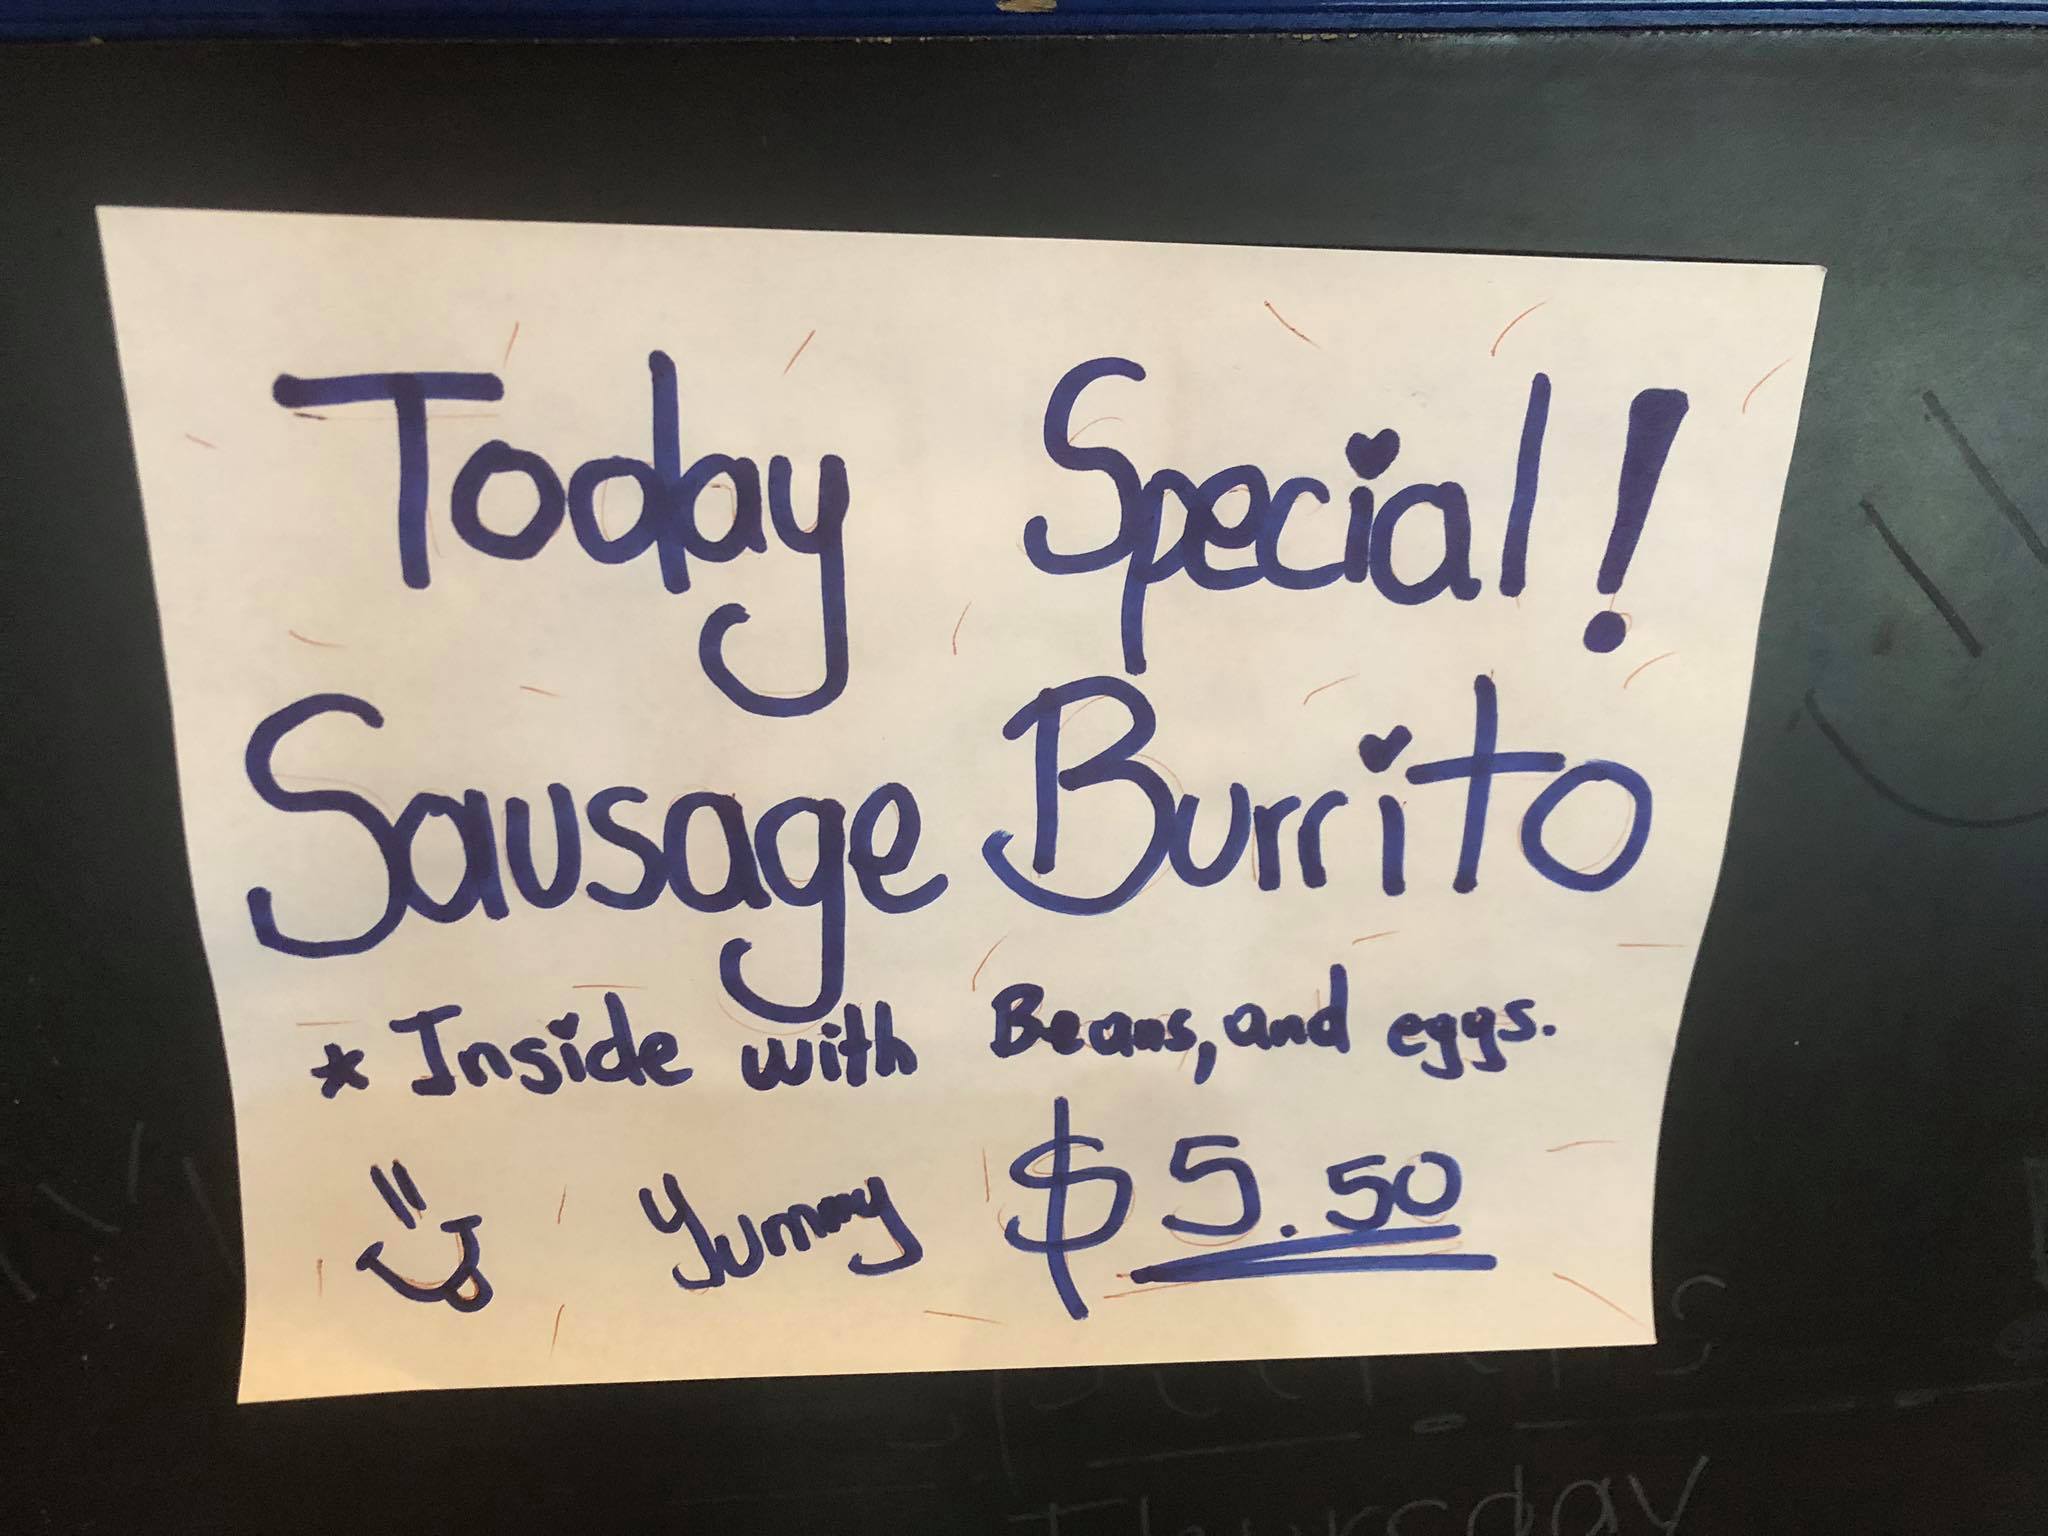 Today Special!
Sausage Burrito
* Inside with Beans, and eggs.
Yummy $5.50
Specials
Thursday